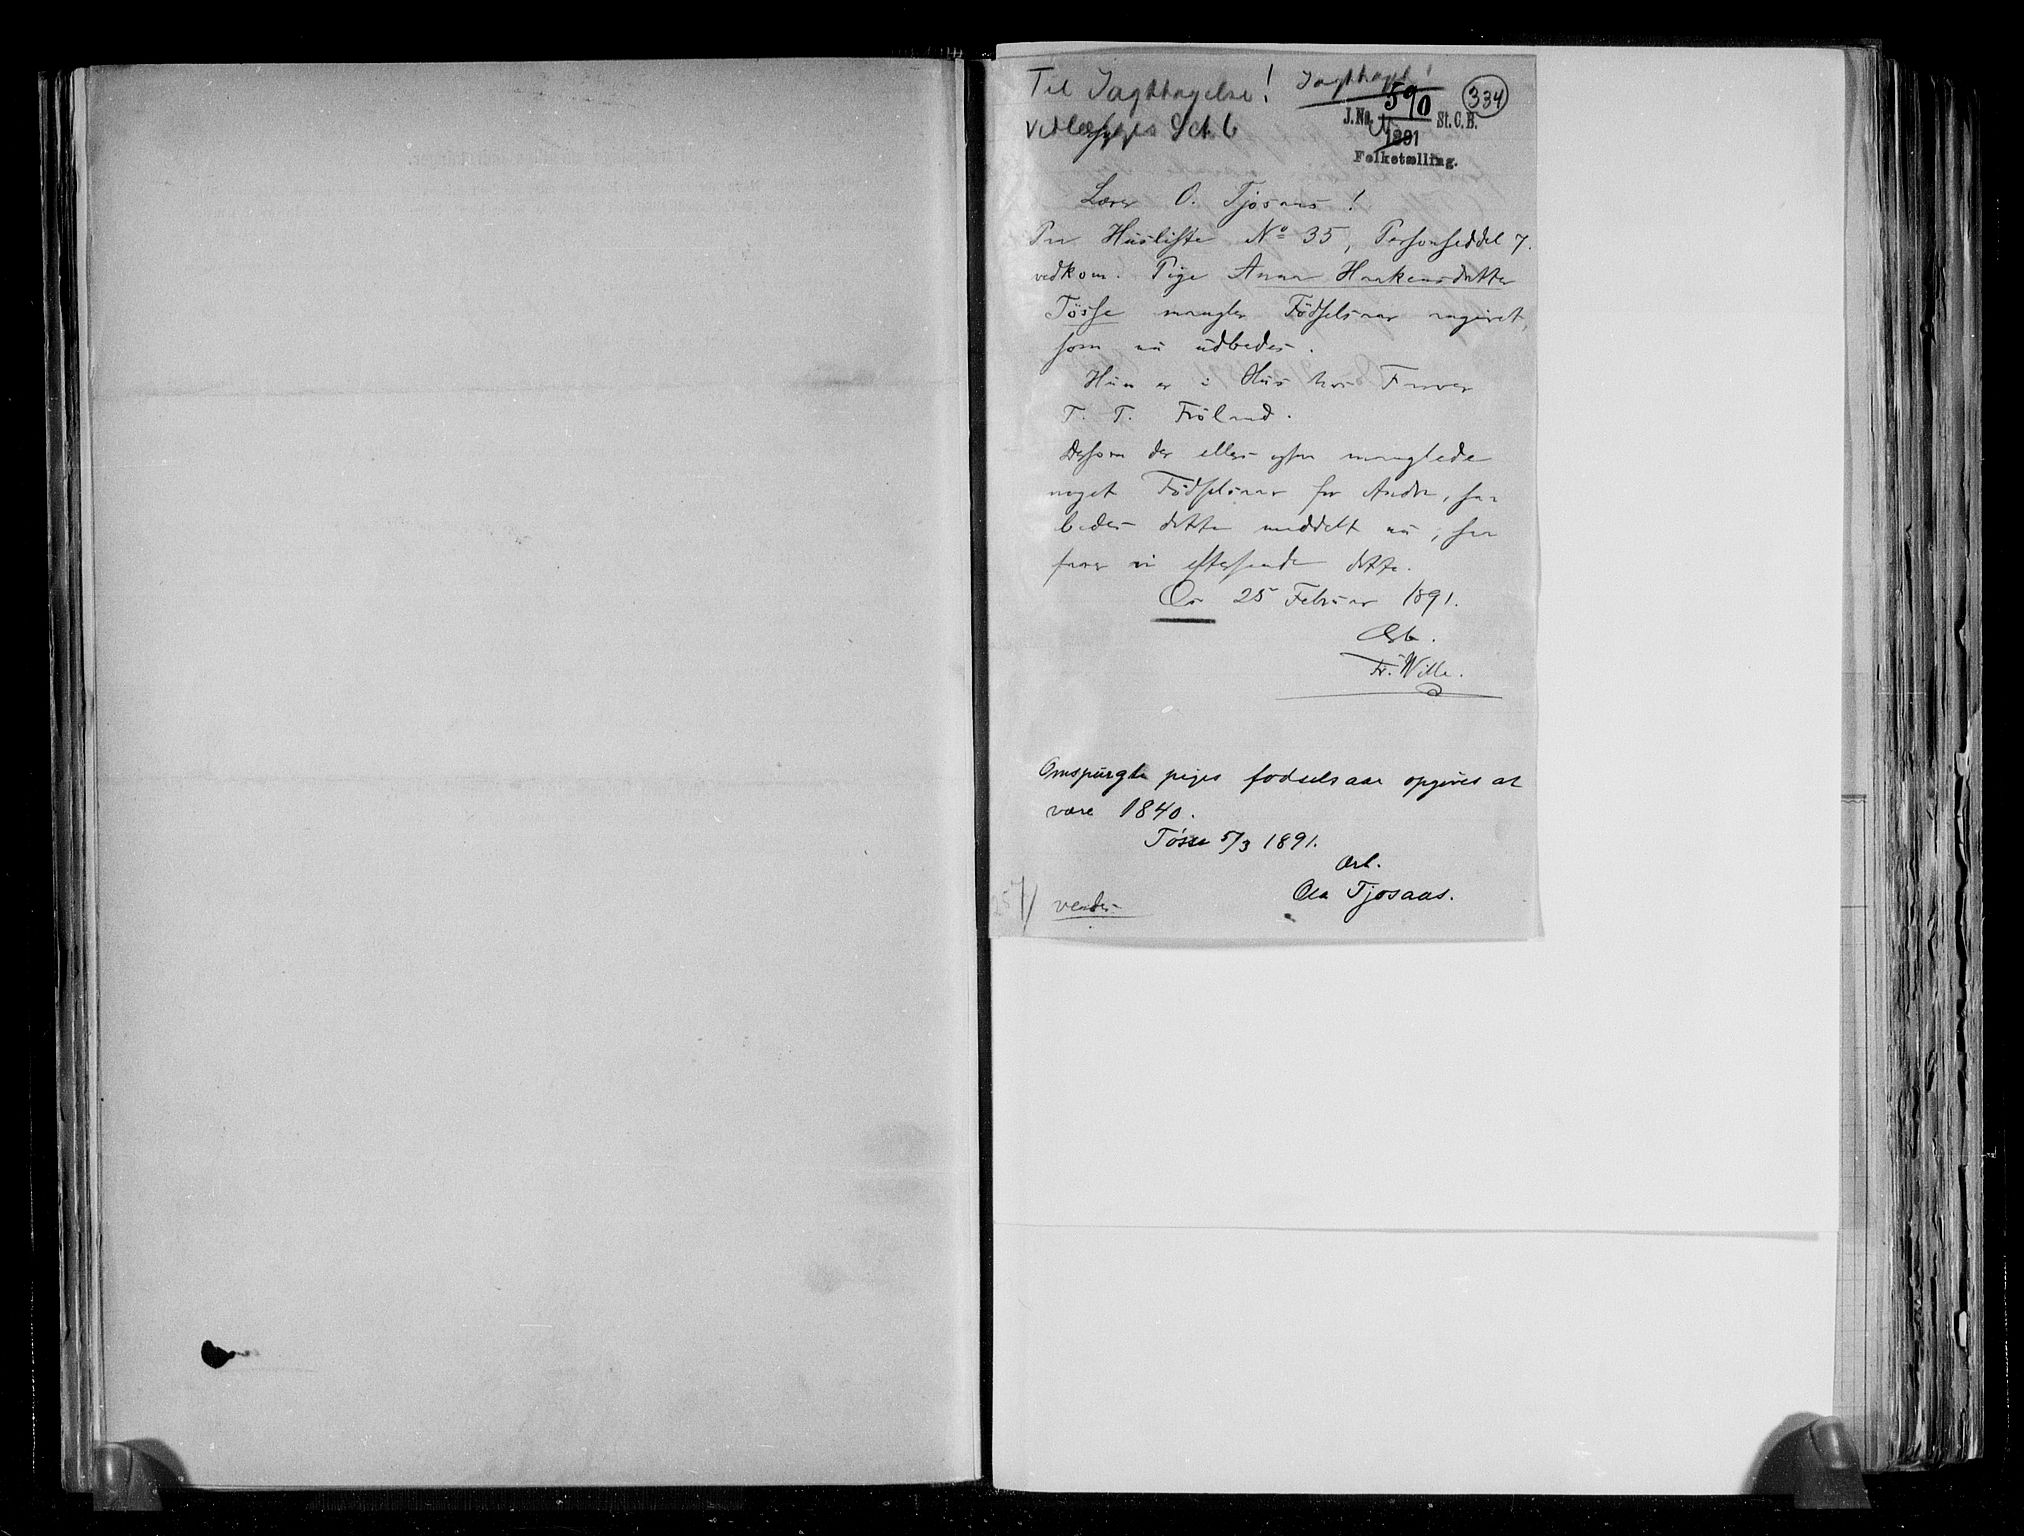 Til Iagttagelse! Iagttaget!
Vedlægges Sch 6
334
590
J.No. St.C.B.
1891
Folketælling.
Lærer O. Tjosaas!
Paa Husliste No 35, Personseddel 7.
vedkom. Pige Anna Haakensdatter
Tösse mangler Födselsaar angivet,
som nu udbedes.
Hun er i Hus hos Farver
T. T. Fröland.
Dersom der ellers ogsaa manglede
noget Födselsaar for Andre, saa
bedes dette meddelt nu, saa
faar vi eftersende dette.
Os 25 Februar 1891.
Ærb.
Fr. Wille.
Omspurgte piges fodselsaar opgives at
være 1840.
Tösse 5/3 1891.
Ærb.
Ola Tjosaas.
257/ vendes